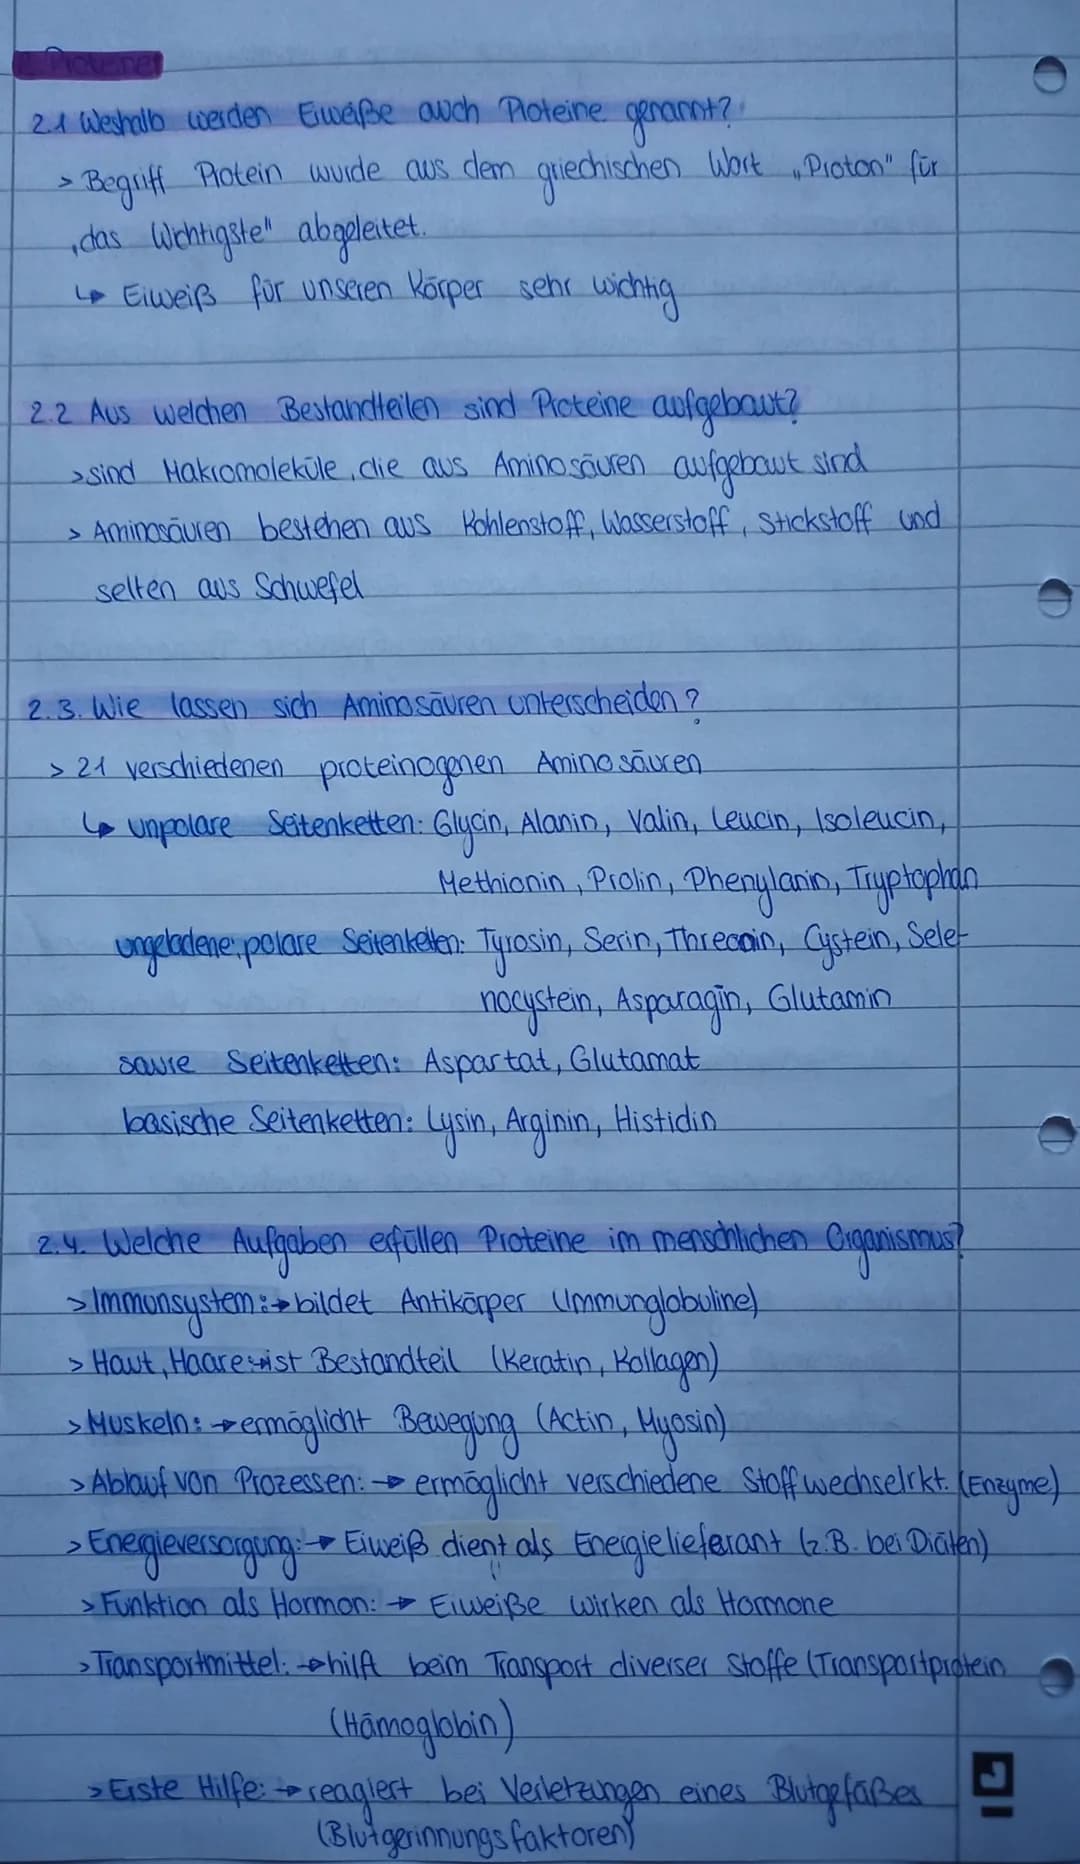 2. Proteine
2.1 Weshalb werden Eiweiße auch Proteine genannt?
> Begriff Protein wurde aus dem griechischen Wort „Proton" für
„das Wichtigste" abgeleitet.
↳ Eiweiß für unseren Körper sehr wichtig
2.2 Aus welchen Bestandteilen sind Proteine aufgebaut?
> sind Makromoleküle, die aus Aminosäuren aufgebaut sind
> Aminosäuren bestehen aus Kohlenstoff, Wasserstoff, Stickstoff und
selten aus Schwefel
2.3. Wie lassen sich Aminosäuren unterscheiden?
> 21 verschiedenen proteinogenen Aminosäuren
↳ unpolare Seitenketten: Glycin, Alanin, Valin, Leucin, Isoleucin,
Methionin, Prolin, Phenylanin, Tryptophan
ungeladene, polare Seitenketten: Tyrosin, Serin, Threonin, Cystein, Sele-
nocystein, Asparagin, Glutamin
saure Seitenketten: Aspartat, Glutamat
basische Seitenketten: Lysin, Arginin, Histidin
2.4. Welche Aufgaben erfüllen Proteine im menschlichen Organismus?
> Immunsystem: → bildet Antikörper (Immunglobuline)
> Haut, Haare: → ist Bestandteil (Keratin, Kollagen)
> Muskeln: → ermöglicht Bewegung (Actin, Myosin)
> Ablauf von Prozessen: → ermöglicht verschiedene Stoffwechselrkt. (Enzyme)
> Energieversorgung: → Eiweiß dient als Energielieferant (z.B. bei Diäten)
> Funktion als Hormon: → Eiweiße wirken als Hormone
> Transportmittel: → hilft beim Transport diverser Stoffe (Transportprotein
(Hämoglobin)
> Erste Hilfe: → reagiert bei Verletzungen eines Blutgefäßes
(Blutgerinnungsfaktoren)